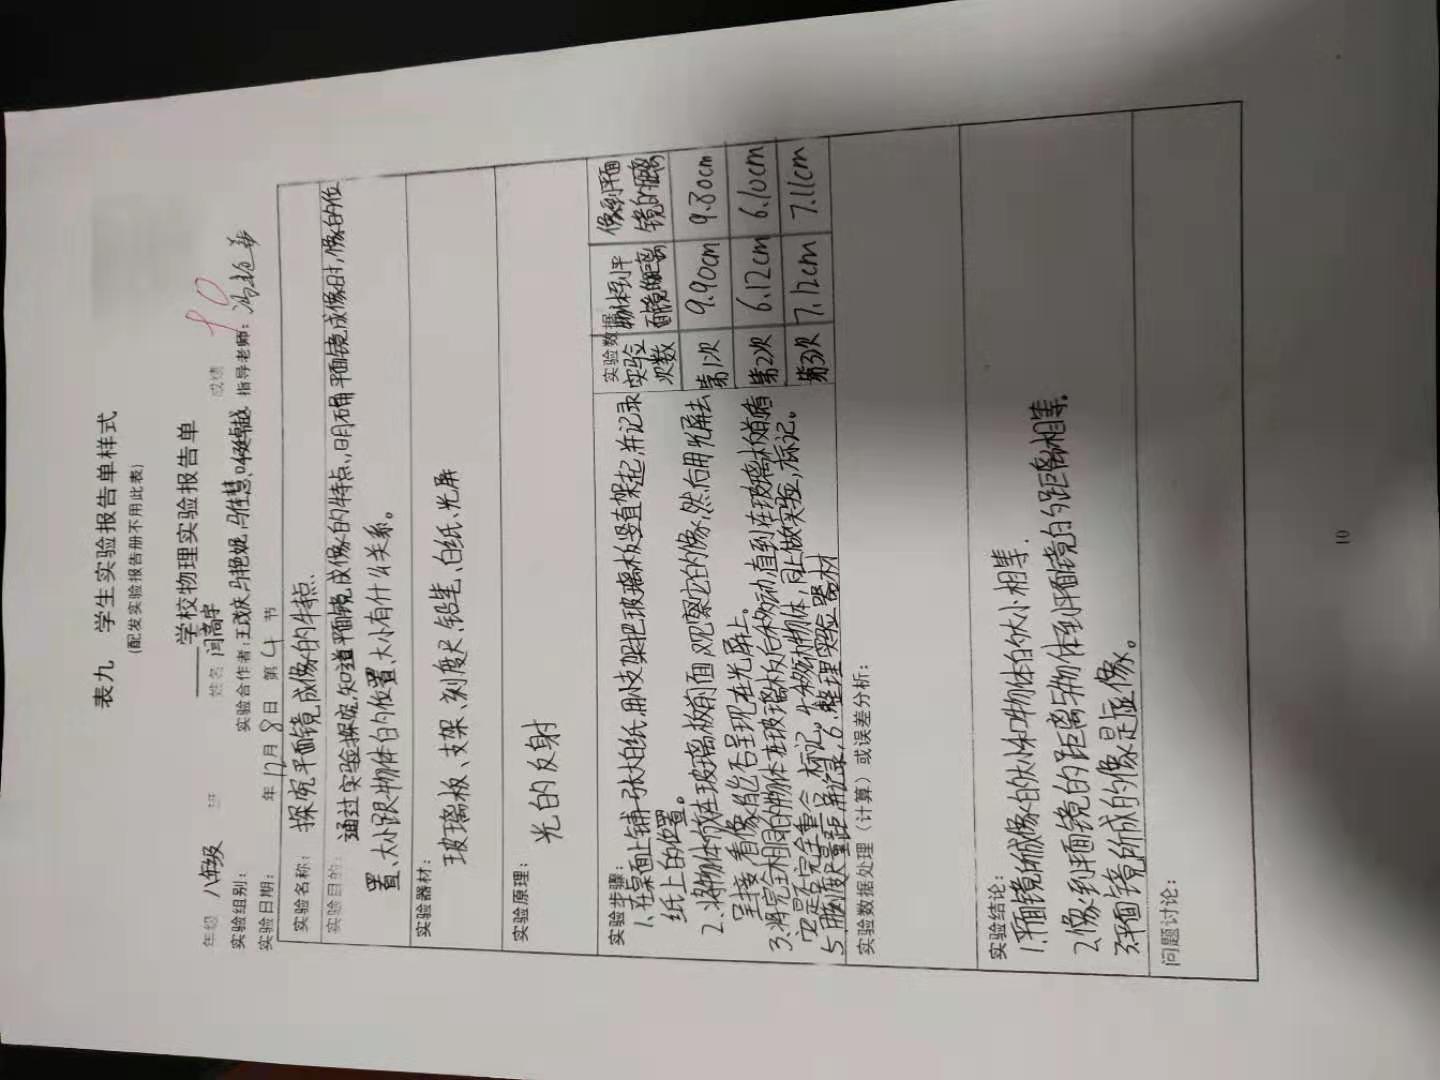 表九 学生实验报告单样式
(配发实验报告册不用此表)
学校物理实验报告单
年级 八年级 班 姓名 闫高宇 成绩 90
实验组别: 实验合作者:王茂庆,马艳妮,马佳慧 指导老师:
实验日期: 年 12月 8日 第 4 节
实验名称: 探究平面镜成像的特点.
实验目的: 通过实验探究,知道平面镜成像的特点,明确平面镜成像时,像的位
置、大小跟物体的位置、大小有什么关系。
实验器材:
玻璃板、支架、刻度尺、铅笔、白纸、光屏
实验原理:
光的反射
实验步骤:
1.在桌面上铺一张大白纸,用支架把玻璃板竖直架起并记录
纸上的位置。
2.将物体放在玻璃板前面观察它的像,然后用光屏去
呈接看像能否呈现在光屏上。
3.将完全相同的物体在玻璃板后移动,直到在玻璃板前看
它是否完全重合,标记。4.移动物体,同上做实验,标记。
5.用刻度尺量距离,记录,6.整理实验器材
实验数据
实验次数 物体到平面镜的距离 像到平面镜的距离
第1次 9.90cm 9.80cm
第2次 6.12cm 6.10cm
第3次 7.12cm 7.11cm
实验数据处理(计算)或误差分析:
实验结论:
1.平面镜所成像的大小和物体的大小相等.
2.像到平面镜的距离与物体到平面镜的距离相等。
3.平面镜所成的像是虚像。
问题讨论:
10